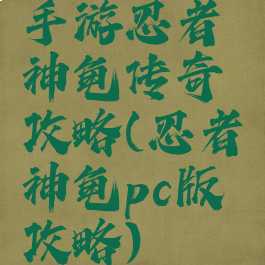 手游忍者
神龟传奇
攻略(忍者
神龟pc版
攻略)